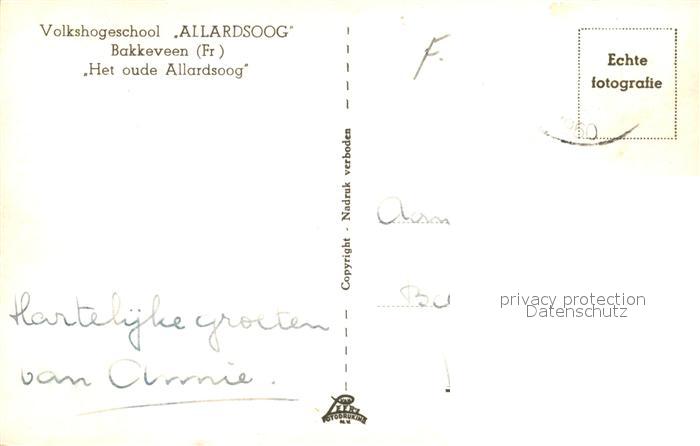 Volkshogeschool „ALLARDSOOG"
Bakkeveen (Fr )
„Het oude Allardsoog"
Hartelijke groeten
van Annie.
Copyright - Nadruk verboden
VAN LEER'S
FOTODRUKIND.
N.V.
F.
Echte
fotografie
60
Aan
privacy protection
Datenschutz